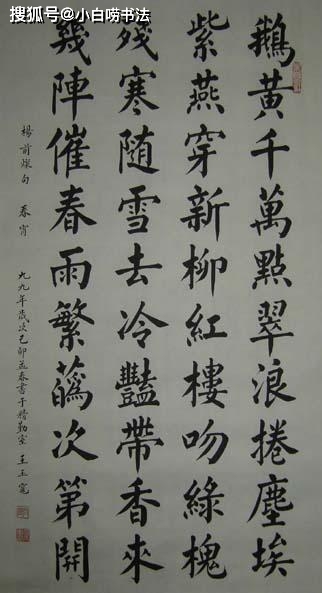 搜狐号@小白唠书法
鵝黃千萬點翠浪捲塵埃
紫燕穿新柳紅樓吻綠槐
殘寒随雪去冷豔帶香來
幾陣催春雨繁蘤次第開
楊前燦句 春宵 九九年歲次己卯孟春書于精勤室 王玉寬